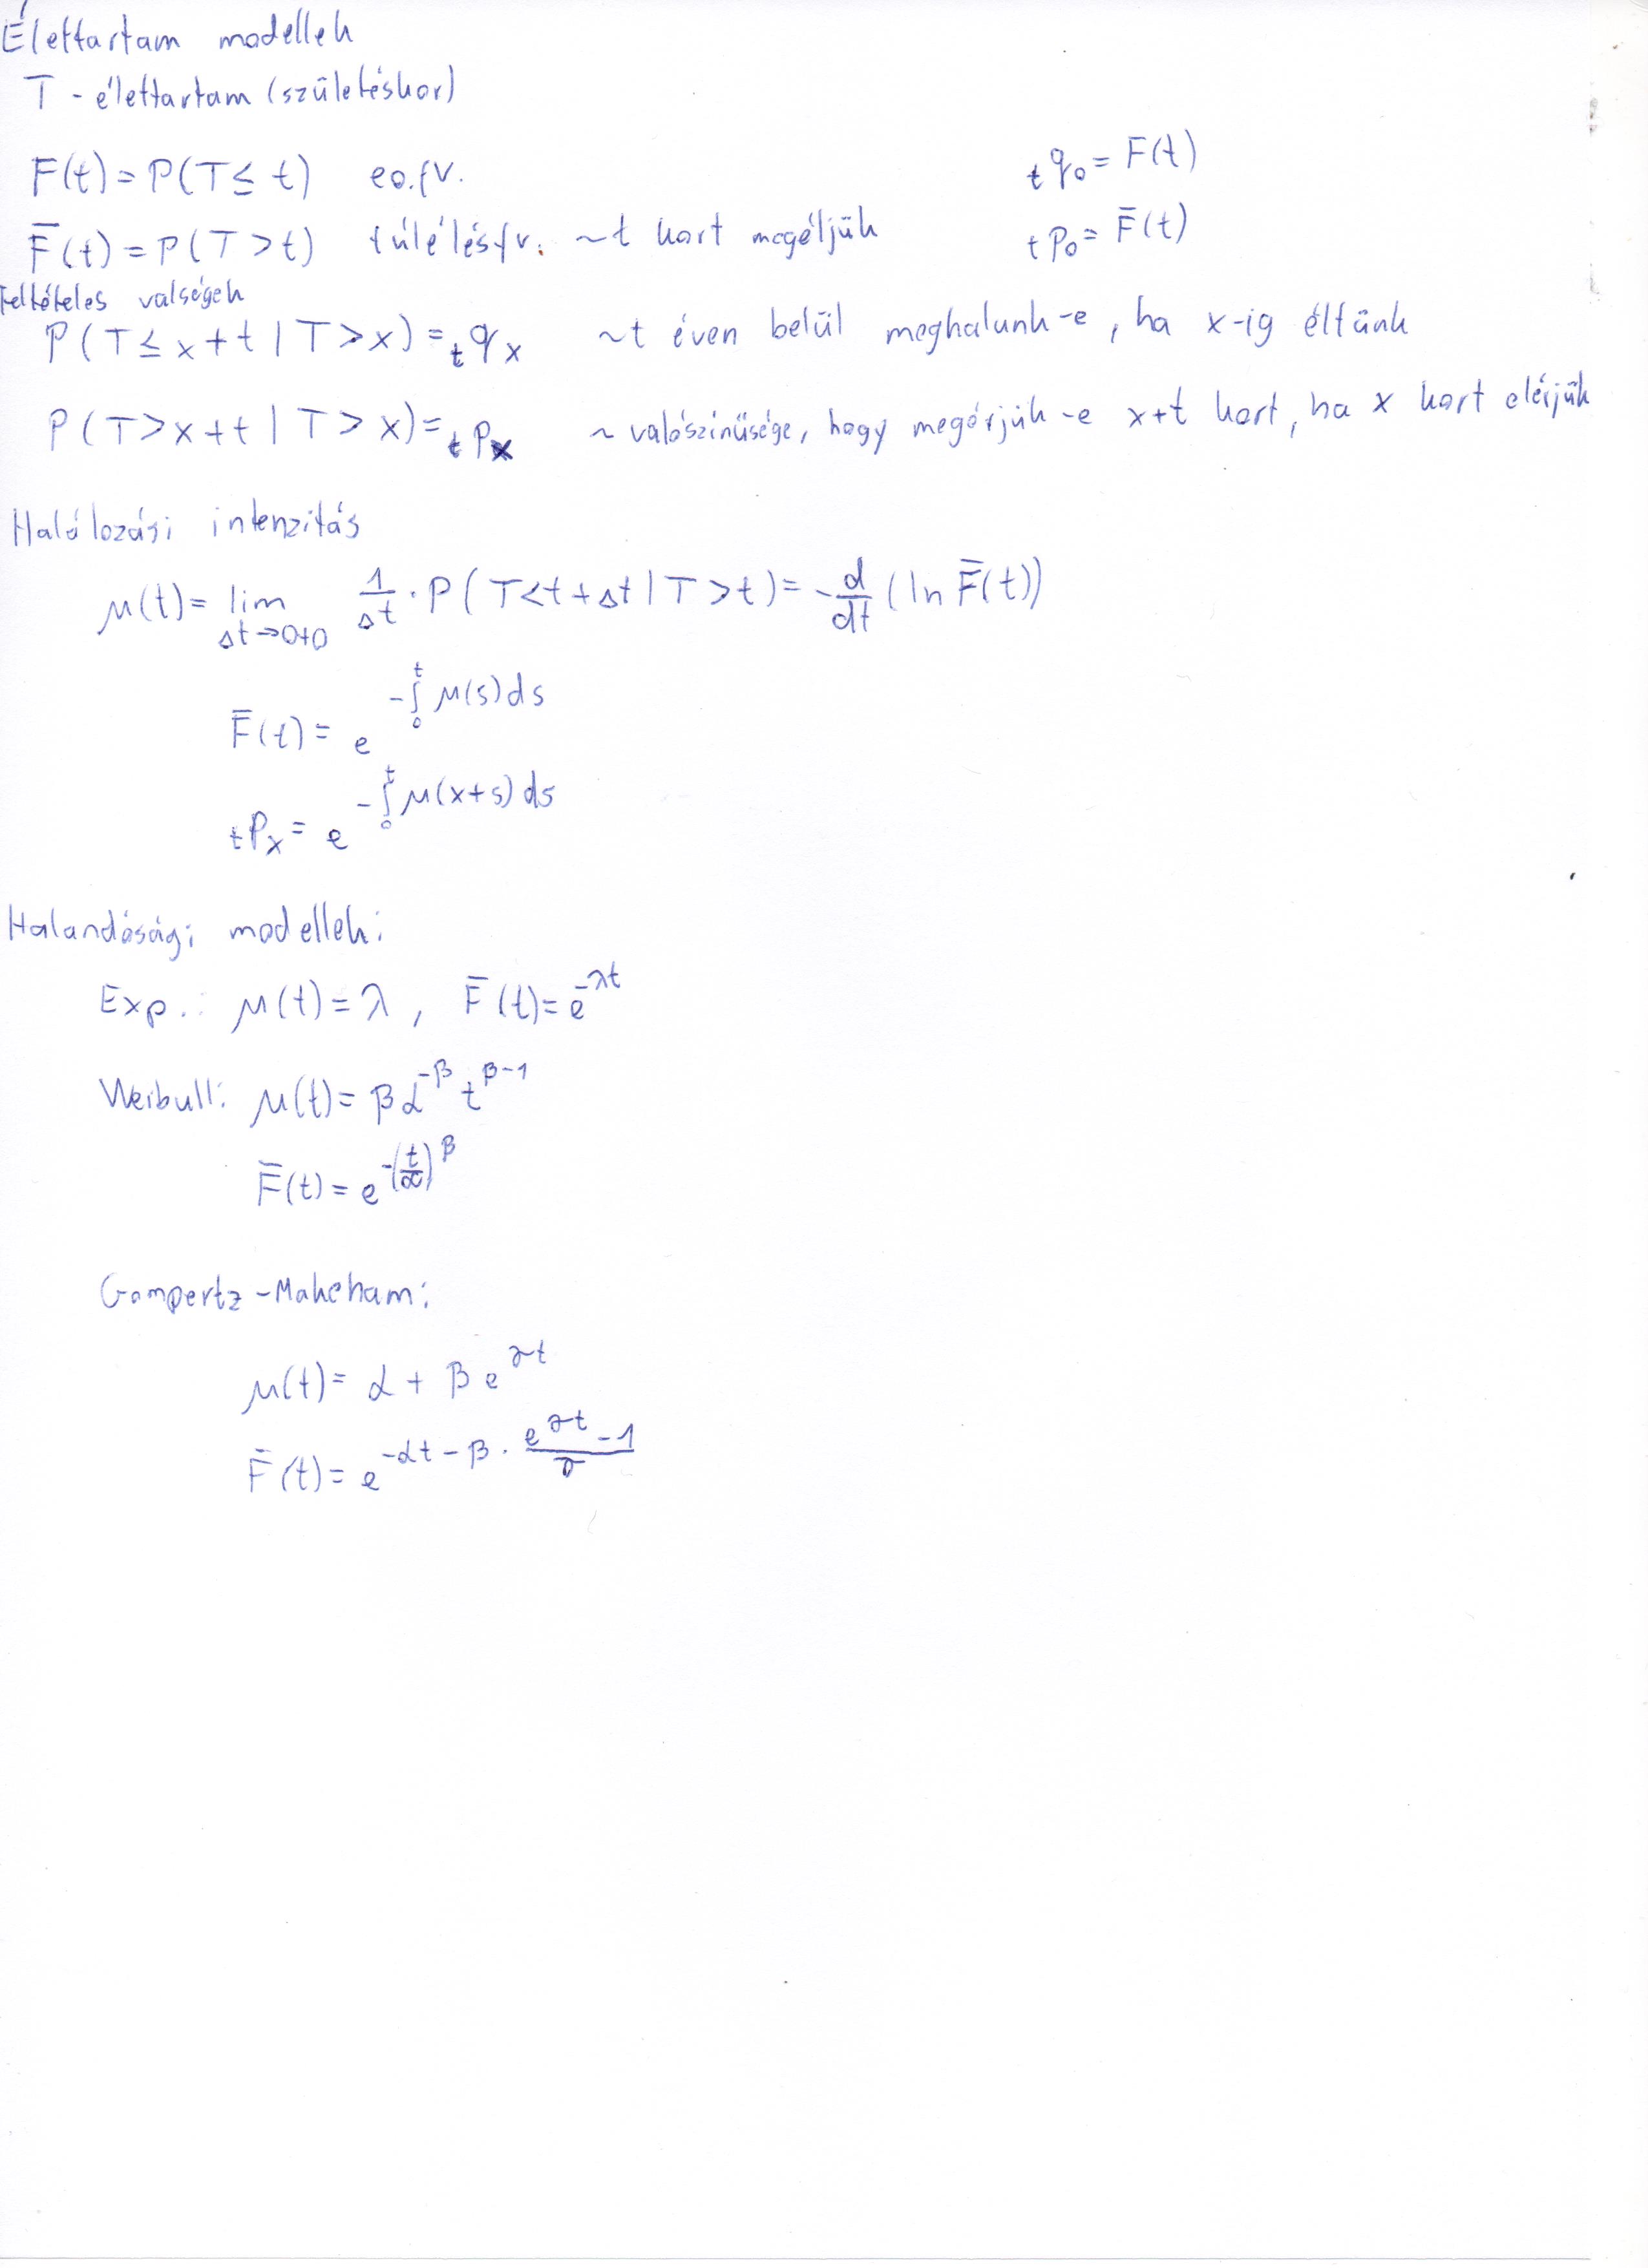 Élettartam modellek
T - élettartam (születéskor)
F(t) = P(T ≤ t) eo.fv. tq₀ = F(t)
F̅(t) = P(T > t) túlélésfv. ~t kort megéljük tp₀ = F̅(t)
Feltételes valségek
P(T ≤ x+t | T > x) = tqₓ ~t éven belül meghalunk-e, ha x-ig éltünk
P(T > x+t | T > x) = tpₓ ~ valószínűsége, hogy megérjük-e x+t kort, ha x kort elérjük
Halálozási intenzitás
μ(t) = lim_{Δt→0+0} 1/Δt · P(T < t+Δt | T > t) = -d/dt (ln F̅(t))
F̅(t) = e^{-∫₀ᵗ μ(s)ds}
tpₓ = e^{-∫₀ᵗ μ(x+s)ds}
Halandósági modellek:
Exp.: μ(t) = λ, F̅(t) = e^{-λt}
Weibull: μ(t) = βα^{-β} t^{β-1}
F̅(t) = e^{-(t/α)^β}
Gompertz-Makeham:
μ(t) = α + βe^{γt}
F̅(t) = e^{-αt - β · (e^{γt} - 1)/γ}